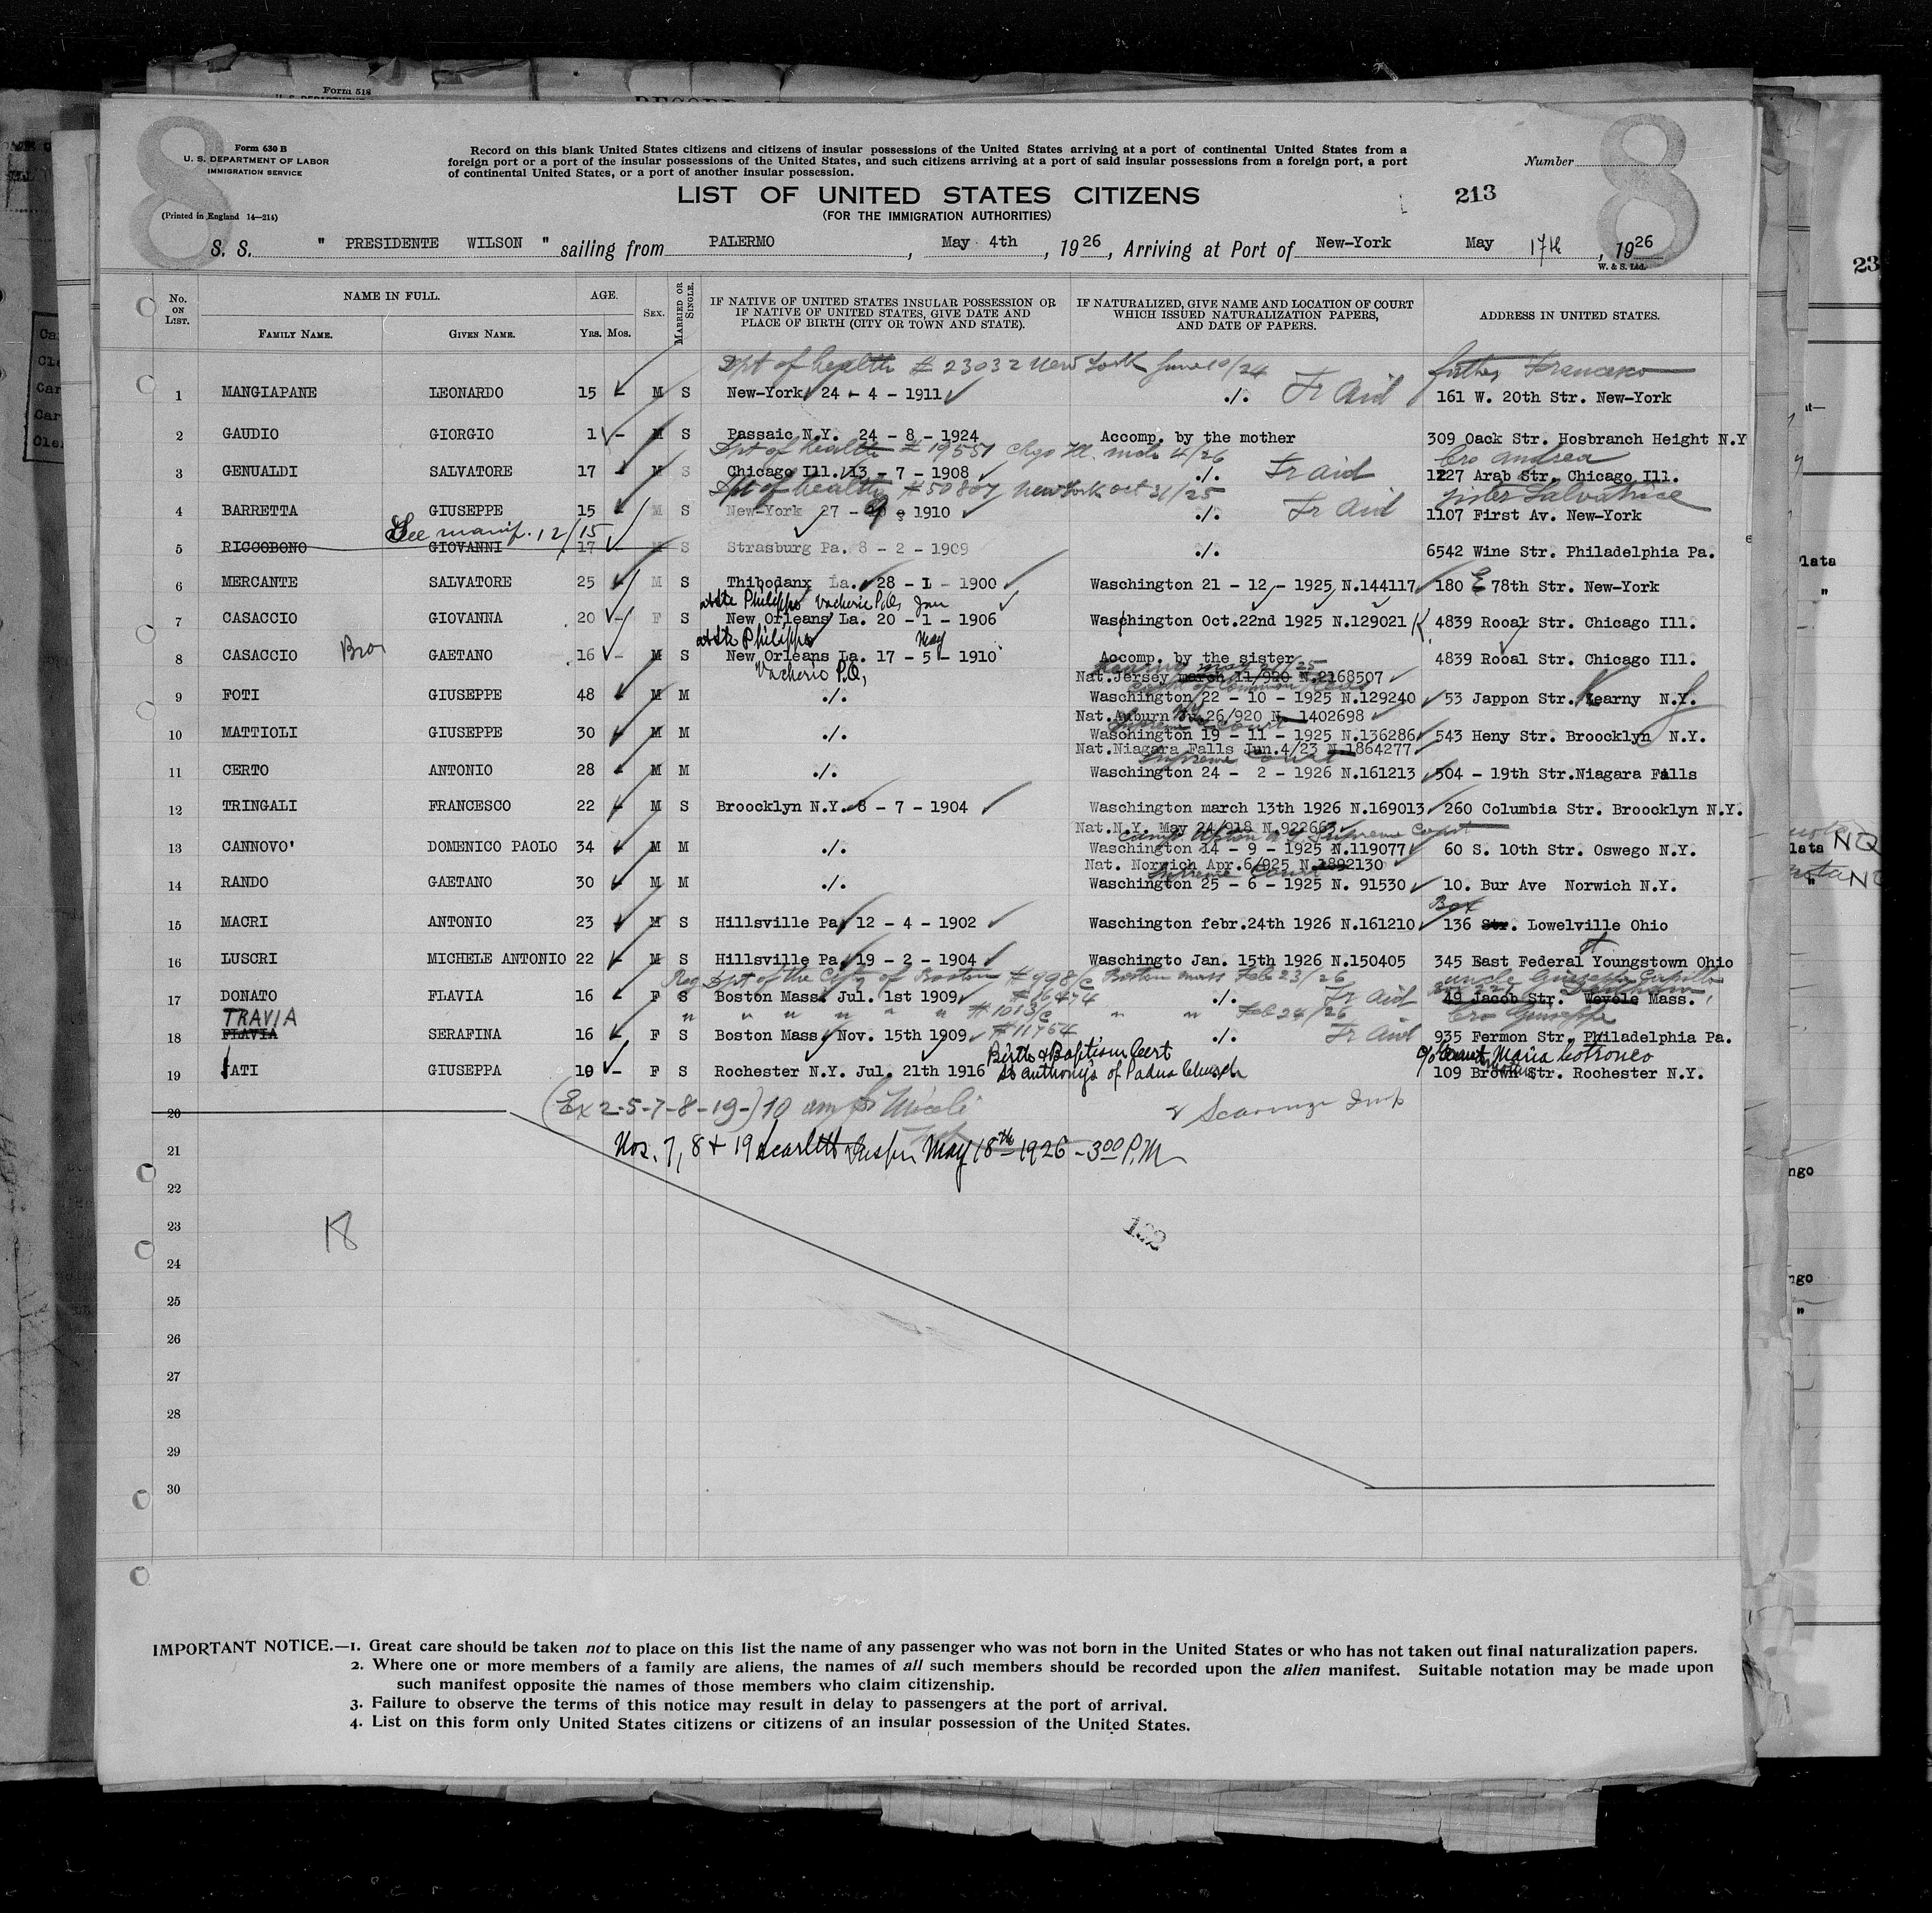 Form 518
Form 630 B
U. S. DEPARTMENT OF LABOR
IMMIGRATION SERVICE
(Printed in England 14—214)
8
8
Record on this blank United States citizens and citizens of insular possessions of the United States arriving at a port of continental United States from a
foreign port or a port of the insular possessions of the United States, and such citizens arriving at a port of said insular possessions from a foreign port, a port
of continental United States, or a port of another insular possession.
Number
LIST OF UNITED STATES CITIZENS
213
(FOR THE IMMIGRATION AUTHORITIES)
S. S. " PRESIDENTE WILSON " sailing from PALERMO , May 4th , 1926, Arriving at Port of New-York May 17th , 1926
W. & S. Ltd.
No. ON LIST. NAME IN FULL. FAMILY NAME. GIVEN NAME. AGE. YRS. MOS. SEX. MARRIED OR SINGLE. IF NATIVE OF UNITED STATES INSULAR POSSESSION OR IF NATIVE OF UNITED STATES, GIVE DATE AND PLACE OF BIRTH (CITY OR TOWN AND STATE). IF NATURALIZED, GIVE NAME AND LOCATION OF COURT WHICH ISSUED NATURALIZATION PAPERS, AND DATE OF PAPERS. ADDRESS IN UNITED STATES.
Dpt of health # 23032 New York June 10/24 father Francesco
1 MANGIAPANE LEONARDO 15 - M S New-York 24 - 4 - 1911 ./. Fr Aid 161 W. 20th Str. New-York
2 GAUDIO GIORGIO 1 - M S Passaic N.Y. 24 - 8 - 1924 Accomp. by the mother 309 Oack Str. Hosbranch Height N.Y
Dpt of health # 19551 Chgo Ill. 4/26 bro Andrea
3 GENUALDI SALVATORE 17 - M S Chicago Ill. 13 - 7 - 1908 ./. Fr aid 1227 Arab Str. Chicago Ill.
Dpt of health # 50807 New York Oct 31/25 sister Salvatrice
4 BARRETTA GIUSEPPE 15 - M S New-York 27 - 9 - 1910 ./. Fr Aid 1107 First Av. New-York
See manif. 12/15
5 RICCOBONO GIOVANNI 17 - M S Strasburg Pa. 8 - 2 - 1909 ./. 6542 Wine Str. Philadelphia Pa.
6 MERCANTE SALVATORE 25 - M S Thibodanx La. 28 - 1 - 1900 Waschington 21 - 12 - 1925 N.144117 180 E 78th Str. New-York
at Ste Philippe Vacherie P.O. Jan
7 CASACCIO GIOVANNA 20 - F S New Orleans La. 20 - 1 - 1906 Waschington Oct.22nd 1925 N.129021 4839 Rooal Str. Chicago Ill.
at Ste Philippe May
8 CASACCIO Bro GAETANO 16 - M S New Orleans La. 17 - 5 - 1910 Accomp. by the sister 4839 Rooal Str. Chicago Ill.
Vacherie P.O,
Nat.Jersey march 11/920 N.2168507
9 FOTI GIUSEPPE 48 - M M ./. Waschington 22 - 10 - 1925 N.129240 53 Jappon Str. Kearny N.Y.
Nat.Auburn 26/920 N. 1402698
10 MATTIOLI GIUSEPPE 30 - M M ./. Waschington 19 - 11 - 1925 N.136286 543 Heny Str. Broocklyn N.Y.
Nat.Niagara Falls Jun.4/23 N.1864277
Supreme Court
11 CERTO ANTONIO 28 - M M ./. Waschington 24 - 2 - 1926 N.161213 504 - 19th Str.Niagara Falls
12 TRINGALI FRANCESCO 22 - M S Broocklyn N.Y. 8 - 7 - 1904 Waschington march 13th 1926 N.169013 260 Columbia Str. Broocklyn N.Y.
Nat.N.Y. May 24/918 N.922663
Camp Upton N.Y. Supreme Court
13 CANNOVO' DOMENICO PAOLO 34 - M M ./. Waschington 14 - 9 - 1925 N.119077 60 S. 10th Str. Oswego N.Y.
Nat. Norwich Apr.6/925 N.1892130
Supreme Court
14 RANDO GAETANO 30 - M M ./. Waschington 25 - 6 - 1925 N. 91530 10. Bur Ave Norwich N.Y.
Box
15 MACRI ANTONIO 23 - M S Hillsville Pa. 12 - 4 - 1902 Waschington febr.24th 1926 N.161210 136 Str. Lowelville Ohio
16 LUSCRI MICHELE ANTONIO 22 - M S Hillsville Pa. 19 - 2 - 1904 Waschingto Jan. 15th 1926 N.150405 345 East Federal St Youngstown Ohio
Reg Dpt of the City of Boston # 998/c Boston Mass Feb 23/26 uncle Giuseppe
17 DONATO FLAVIA 16 - F S Boston Mass. Jul. 1st 1909 # 16474 ./. Fr aid 49 Jacob Str. Wevele Mass.
TRAVIA " " " " " " # 1013/c " " Feb 24/26 bro Giuseppe
18 FLAVIA SERAFINA 16 - F S Boston Mass. Nov. 15th 1909 # 11764 ./. Fr Aid 935 Fermon Str. Philadelphia Pa.
Birth & Baptism Cert c/o Aunt Maria Cotroneo
19 FATI GIUSEPPA 19 - F S Rochester N.Y. Jul. 21th 1916 St Anthony's of Padua Church 109 Brown Str. Rochester N.Y.
20 (Ex 2-5-7-8-19-) 10 am Miceli
21 Nos. 7, 8 & 19 Scarlett Inspr May 18th 1926 - 3 00 P.M
22
23 18 132
24
25
26
27
28
29
30
IMPORTANT NOTICE.—1. Great care should be taken not to place on this list the name of any passenger who was not born in the United States or who has not taken out final naturalization papers.
2. Where one or more members of a family are aliens, the names of all such members should be recorded upon the alien manifest. Suitable notation may be made upon
such manifest opposite the names of those members who claim citizenship.
3. Failure to observe the terms of this notice may result in delay to passengers at the port of arrival.
4. List on this form only United States citizens or citizens of an insular possession of the United States.